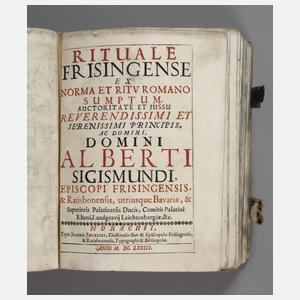 RITUALE
FRISINGENSE
EX
NORMA ET RITV ROMANO
SUMPTUM,
AUCTORITATE ET JUSSU
REVERENDISSIMI ET
SERENISSIMI PRINCIPIS,
AC DOMINI,
DOMINI
ALBERTI
SIGISMUNDI,
EPISCOPI FRISINGENSIS,
& Ratisbonensis, utriusque Bavariæ, &
Superioris Palatinatûs Ducis, Comitis Palatini
Rheni, Landgravij Leichtenbergiæ, &c.
MONACHII,
Typis Joannis Jæcklini, Electoralis Bav. & Episcopalis Frisingensis,
& Ratisbonensis, Typographi & Bibliopolæ.
ANNO M. DC. LXXIII.